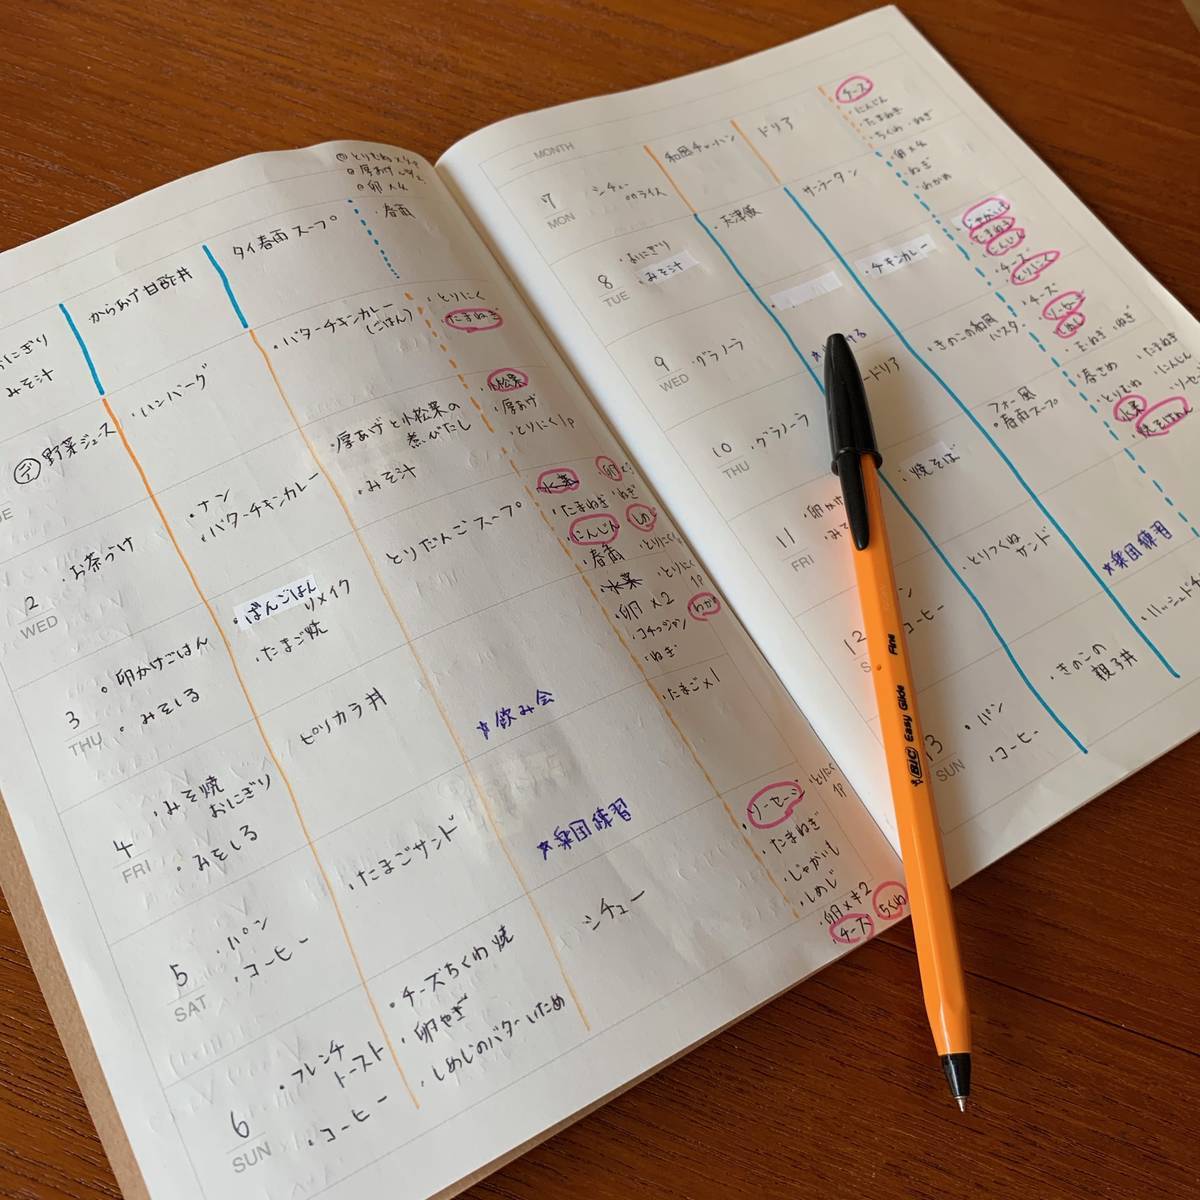 卵×4
おにぎり
みそ汁
からあげ甘酢丼
タイ春雨スープ
・春雨
野菜ジュース
・ハンバーグ
・バターチキンカレー
(ごはん)
・とりにく
たまねぎ
2
WED
・お茶づけ
・ナン
・バターチキンカレー
・厚あげと小松菜の
煮びたし
・みそ汁
小松菜
・厚あげ
・とりにく1P
3
THU
・卵かけごはん
・みそしる
・ばんごはん
リメイク
・たまご焼
・とりだんごスープ
水菜
卵
・たまねぎ
・ねぎ
にんじん
・春雨
4
FRI
・みそ焼
おにぎり
・みそしる
ピリカラ丼
☆飲み会
水菜
・とりにく
1P
・卵×2
わかめ
・コチュジャン
・ねぎ
5
SAT
・パン
・コーヒー
・たまごサンド
☆楽団練習
・たまご×1
6
SUN
・フレンチ
トースト
・コーヒー
・チーズちくわ焼
・卵やき
・しめじのバターいため
シチュー
ソーセージ
・とりにく
1P
・たまねぎ
・じゃがいも
・しめじ
・チーズ
ちくわ
MONTH
7
MON
シチュー
onライス
和風チャーハン
ドリア
チーズ
・にんじん
・たまねぎ
・ちくわ
・ねぎ
8
TUE
・おにぎり
みそ汁
・天津飯
サンラータン
・卵×4
・ねぎ
・わかめ
9
WED
・グラノーラ
・チキンカレー
じゃがいも
たまねぎ
にんじん
・チーズ
とりにく
10
THU
・グラノーラ
・きのこの和風
パスタ
・チーズ
ソーセージ
しめじ
・ねぎ
11
FRI
・焼そば
フォー風
・春雨スープ
・春さめ
・たまねぎ
・とりむね
・にんじん
水菜
・焼そばめん
12
コーヒー
・とりつくね
サンド
☆楽団練習
13
SUN
・パン
・コーヒー
・きのこの
親子丼
BIC Easy Glide Fine